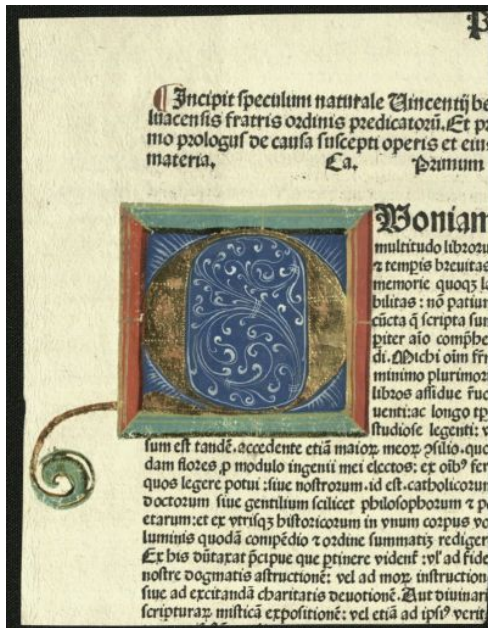 P
Incipit speculum naturale Uincentij be
luacensis fratris ordinis predicatorũ. Et pr
mo prologus de causa suscepti operis et eius
materia. Ca. Primum
QUoniam
multitudo libroru
⁊ temp̱is breuitas
memorie quoqꝫ la
bilitas : nõ patiun
cũcta q̃ scripta sun
p̱iter aĩo comp̃he
di. Michi oim fr̃
minimo plurimor
libros assidue r̃uo
uenti: ac longo tp̱
studiose legenti: v
sum est tandẽ. accedente etiã maioꝝ meoꝝ ꝯsilio. quo
dam flores ꝓ modulo ingenii mei electos: ex oib⁹ fer
quos legere potui : siue nostrorum. id est. catholicorum
doctorum siue gentilium scilicet philosophorum ⁊ po
etarum: et ex vtrisqꝫ historicorum in vnum corpus vo
luminis quodã compẽdio ⁊ ordine summatiꝫ rediger
Ex his dũtaxat p̃cipue que ptinere vident̃ : vl' ad fide
nostre dogmatis astructionẽ: vel ad moꝝ instruction
siue ad excitandã charitatis deuotionẽ. Aut diuinari
scripturaꝝ misticã expositionẽ: vel etiã ad ips⁹ verit